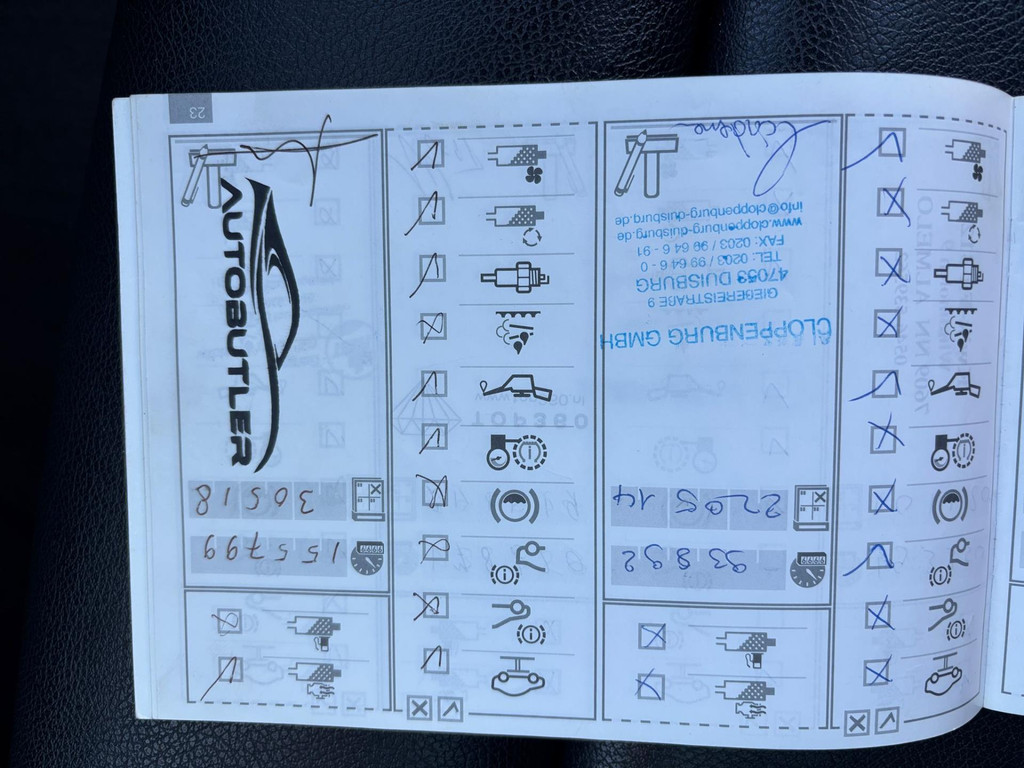 CLOPPENBURG GMBH
GIEßEREISTRAßE 9
47053 DUISBURG
TEL: 0203 / 99 64 6 - 0
FAX: 0203 / 99 64 6 - 91
www.cloppenburg-duisburg.de
info@cloppenburg-duisburg.de
220514
155799
30518
AUTOBUTLER
23